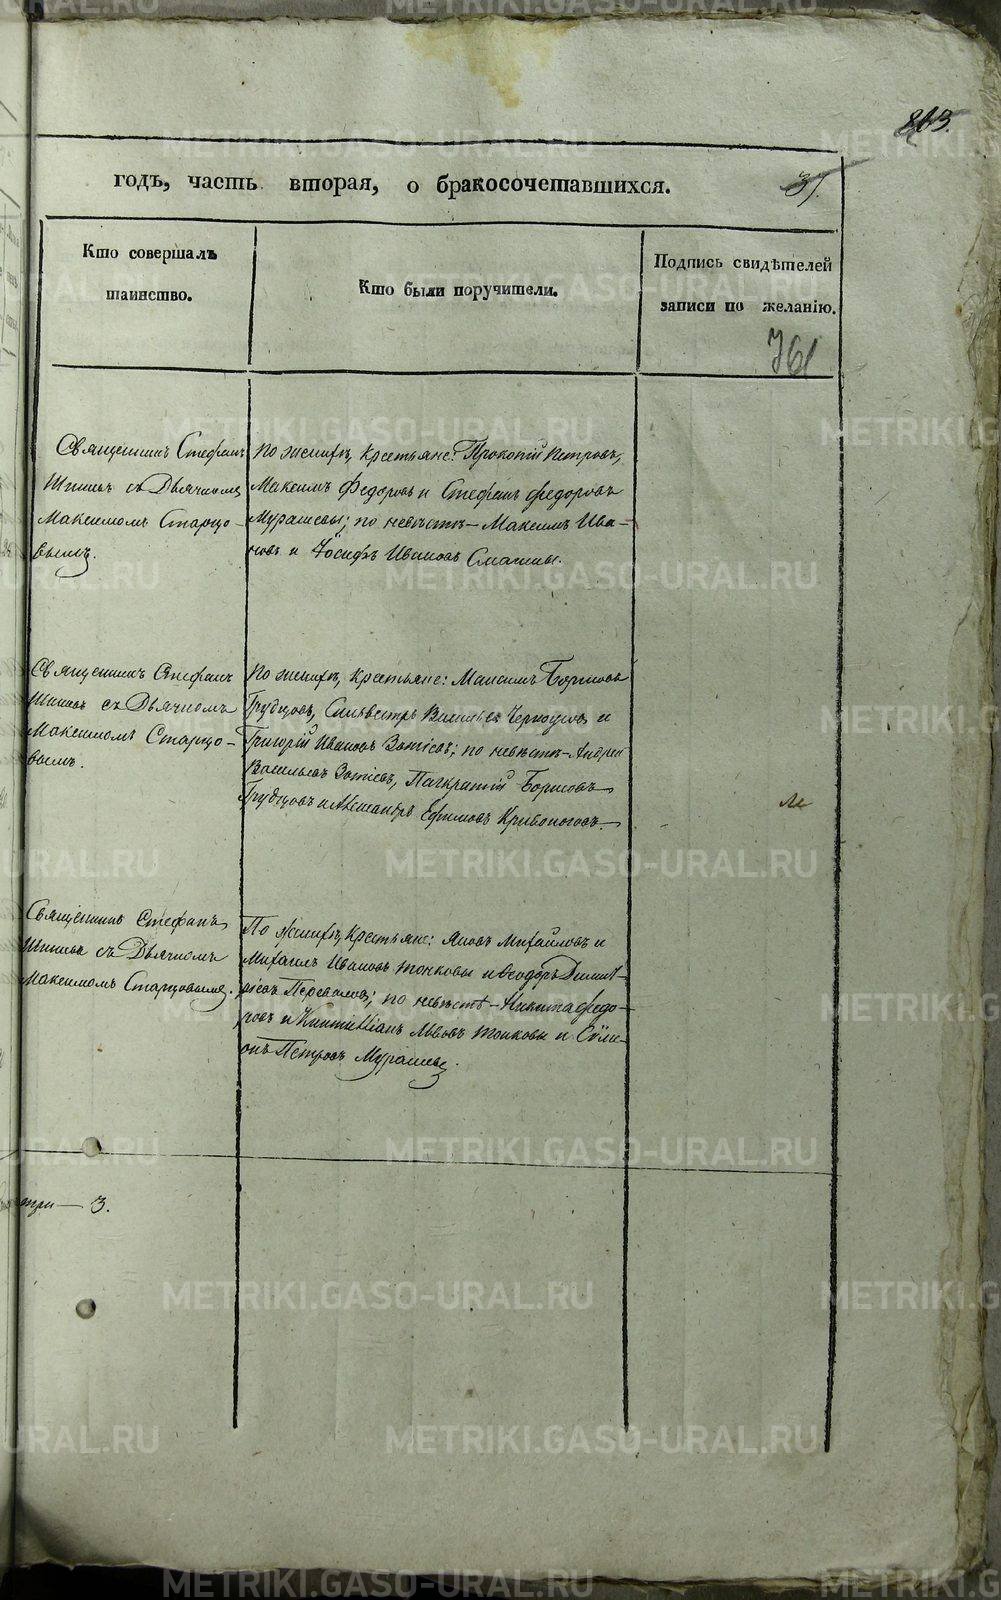 METRIKI.GASO-URAL.RU
863.
годъ, часть вторая, о бракосочетавшихся.
37.
Кто совершалъ
таинство.
Кто были поручители.
Подпись свидѣтелей
записи по желанію.
761
Священникъ Стефанъ
съ Дьячкомъ
Максимомъ Старцо-
вымъ.
По женихѣ, крестьяне: Прокопій Петровъ,
Максимъ Федоровъ и Стефанъ Федоровъ
Мурашевы; по невѣстѣ - Максимъ Ива-
новъ и Іосифъ Ивановъ
Священникъ Стефанъ
съ Дьячкомъ
Максимомъ Старцо-
вымъ.
По женихѣ, крестьяне: Максимъ Борисовъ
Трубцовъ, Сильвестръ Васильевъ Черноусовъ и
Григорій Ивановъ Зотѣевъ; по невѣстѣ - Андрей
Васильевъ Зотѣевъ, Панкратій Борисовъ
Трубцовъ и Александръ Ефимовъ Кривоноговъ.
Священникъ Стефанъ
съ Дьячкомъ
Максимомъ Старцовымъ.
По женихѣ, крестьяне: Яковъ Михайловъ и
Михаилъ Ивановъ Тонковы и Ѳеодоръ Димит-
ріевъ Переваловъ; по невѣстѣ - Никита Федо-
ровъ и Львовъ Тонковы и Сѵме-
онъ Петровъ Мурашевъ.
три - 3.